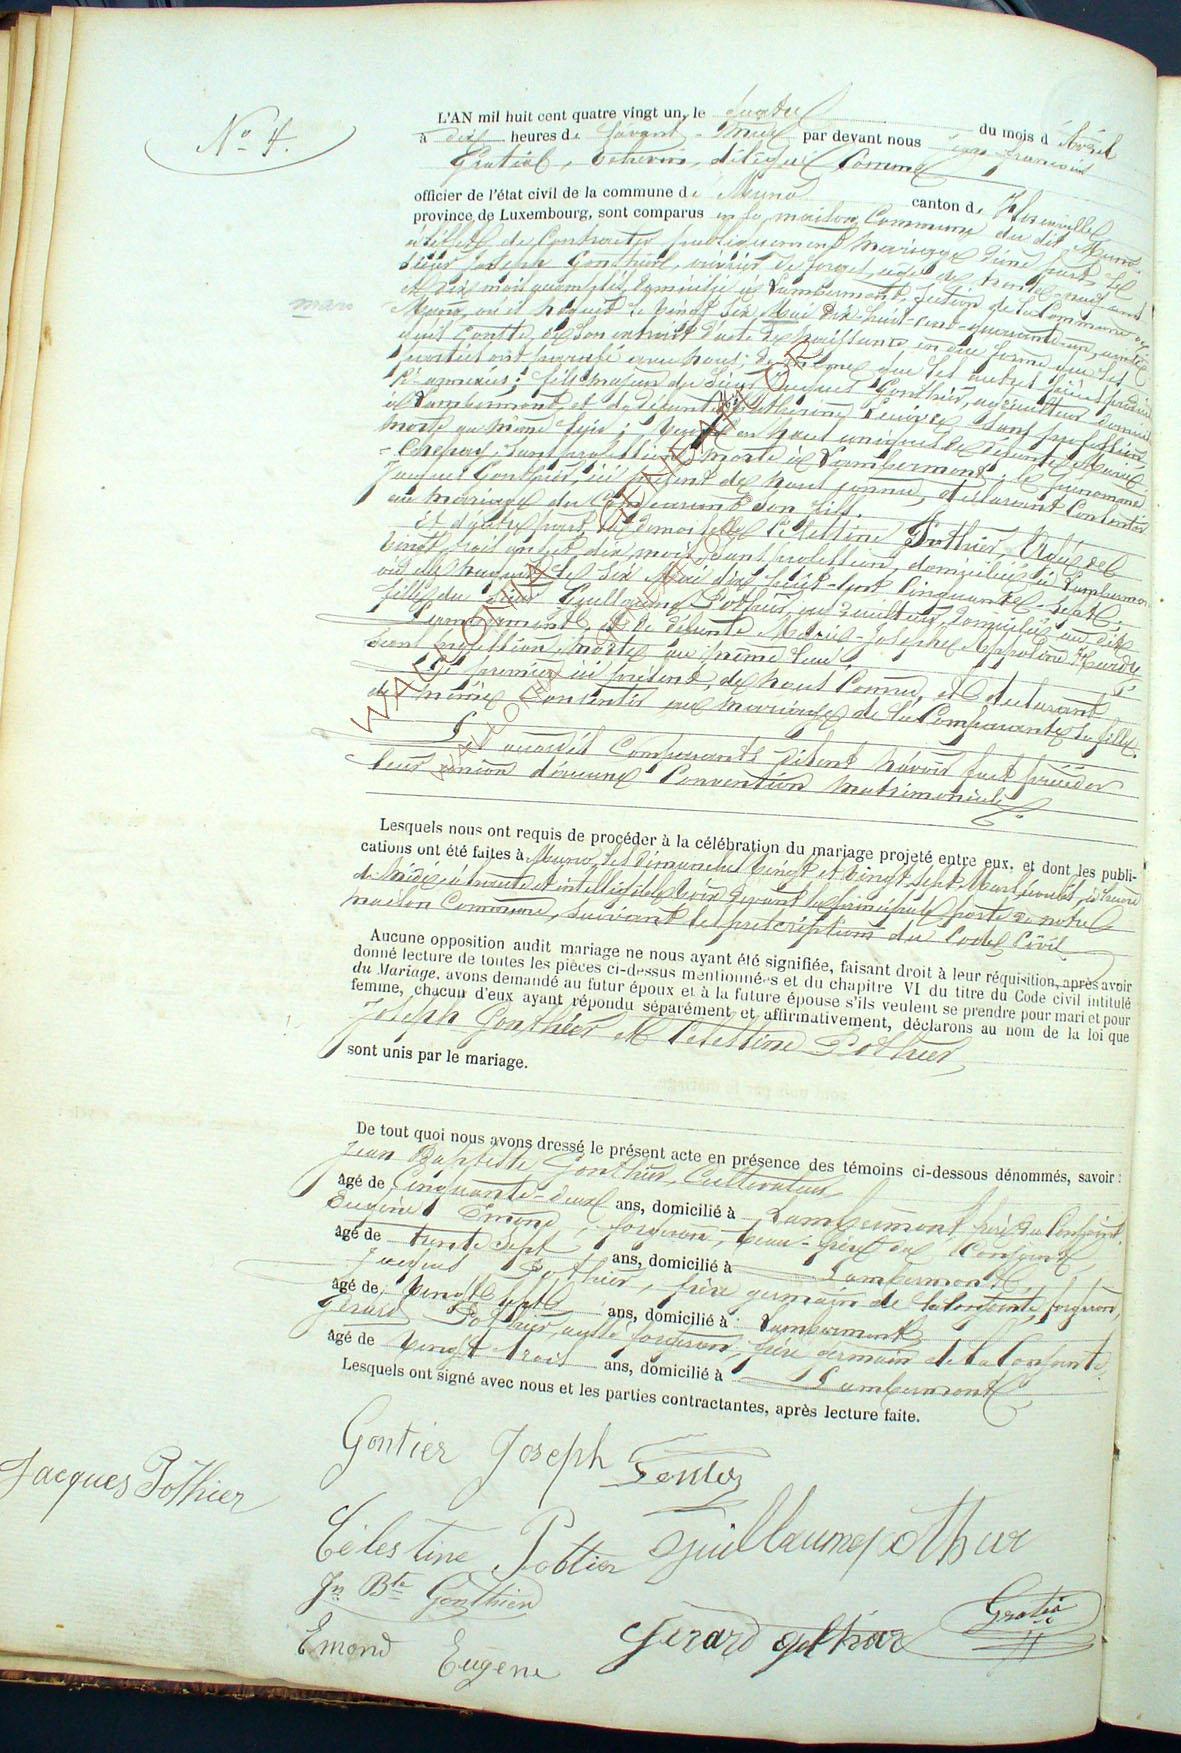 N° 4.
L'AN mil huit cent quatre vingt un, le quatre du mois d'Avril
à dix heures de l'avant-midi par devant nous Jean François
Gratia, Echevin, délégué Comme
officier de l'état civil de la commune de Muno canton de Florenville
province de Luxembourg, sont comparus en la maison Commune du dit Muno
à l'effet de Contracter publiquement mariage d'une part le
Sieur Joseph Gonthier, ouvrier de forges, âgé de trente-neuf ans
et dix mois accomplis, domicilié à Lambermont, Section de la Commune de
Muno, où il naquit le vingt six Mai dix-huit-cent-quarante-un, ainsi
mars
qu'il conste de son extrait d'acte de naissance en due forme que les
parties ont paraphé avec nous; de même que les autres pièces produites
ci-annexées; fils majeur du Sieur Jacques Gonthier, agriculteur domicilié
à Lambermont et de défunte Catherine sans profession
morte au même lieu; veuf en haut de défunte Marie
sans profession morte à Lambermont; le surnommé
Jacques Gonthier, ici présent de nous connu, déclarant Consentir
au mariage du Comparant son fils.
Et d'autre part, la demoiselle Célestine Pothier, âgée de
vingt trois ans et dix mois, sans profession, domiciliée à Lambermont
où elle naquit le six Mai dix huit-cent Cinquante-sept;
fille du Sieur Guillaume Pothier, domicilié au dit
Lambermont, et de défunte Marie-Josephe Appoline
sans profession, morte au même lieu.
Le premier ici présent, de nous Connu, et déclarant
de même Consentir au mariage de la Comparante sa fille.
Les susdits Comparants disent n'avoir fait précéder
leur union d'aucune Convention Matrimoniale.
WALLONIA GENEALOGIE
Lesquels nous ont requis de procéder à la célébration du mariage projeté entre eux, et dont les publi-
cations ont été faites à Muno, les dimanches vingt et vingt-sept Mars écoulés, à l'heure
de midi, à haute et intelligible voix devant la principale porte de notre
maison Commune, suivant les prescriptions du Code Civil
Aucune opposition audit mariage ne nous ayant été signifiée, faisant droit à leur réquisition, après avoir
donné lecture de toutes les pièces ci-dessus mentionnées et du chapitre VI du titre du Code civil intitulé
du Mariage, avons demandé au futur époux et à la future épouse s'ils veulent se prendre pour mari et pour
femme, chacun d'eux ayant répondu séparément et affirmativement, déclarons au nom de la loi que
Joseph Gonthier et Célestine Pothier
sont unis par le mariage.
De tout quoi nous avons dressé le présent acte en présence des témoins ci-dessous dénommés, savoir:
Jean Baptiste Gonthier, Cultivateur
âgé de Cinquante-deux ans, domicilié à Lambermont, frère du Conjoint.
Eugène Emond, forgeron, beau-frère du Conjoint
âgé de trente sept ans, domicilié à Lambermont
Jacques Pothier, frère germain de la Conjointe, forgeron,
âgé de vingt sept ans, domicilié à Lambermont
Gérard Pothier, aussi forgeron, frère germain de la Conjointe
âgé de vingt trois ans, domicilié à Lambermont
Lesquels ont signé avec nous et les parties contractantes, après lecture faite.
Gontier Joseph
Jacques Pothier
Célestine Pothier Guillaume pothier
Jn Bte Gonthier
Gratia
Emond Eugène Gérard pothier